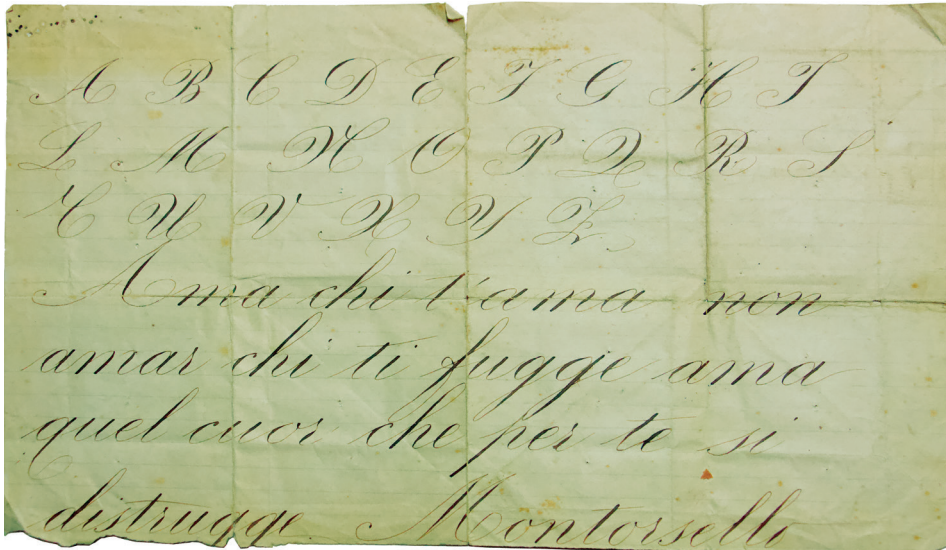 A B C D E F G H I
L M N O P Q R S
T U V X Y Z
Ama chi t'ama non
amar chi ti fugge ama
quel cuor che per te si
distrugge Montorselli